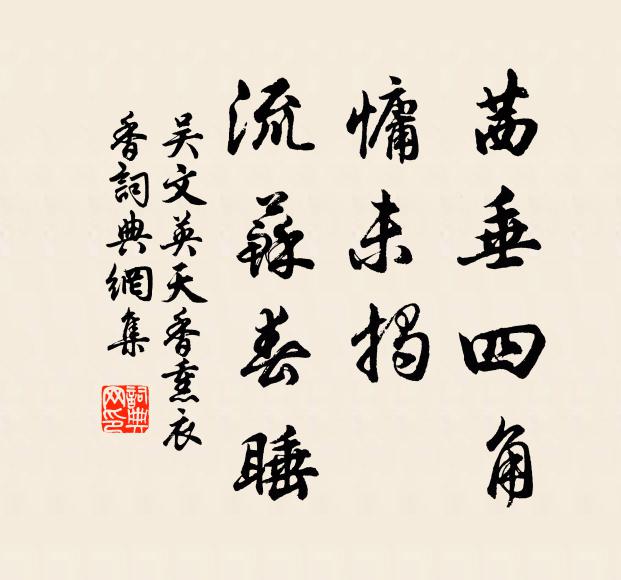 茜垂四角
慵未揭
流蘇春睡
吴文英天香熏衣
香詞典網集
詞典
网印